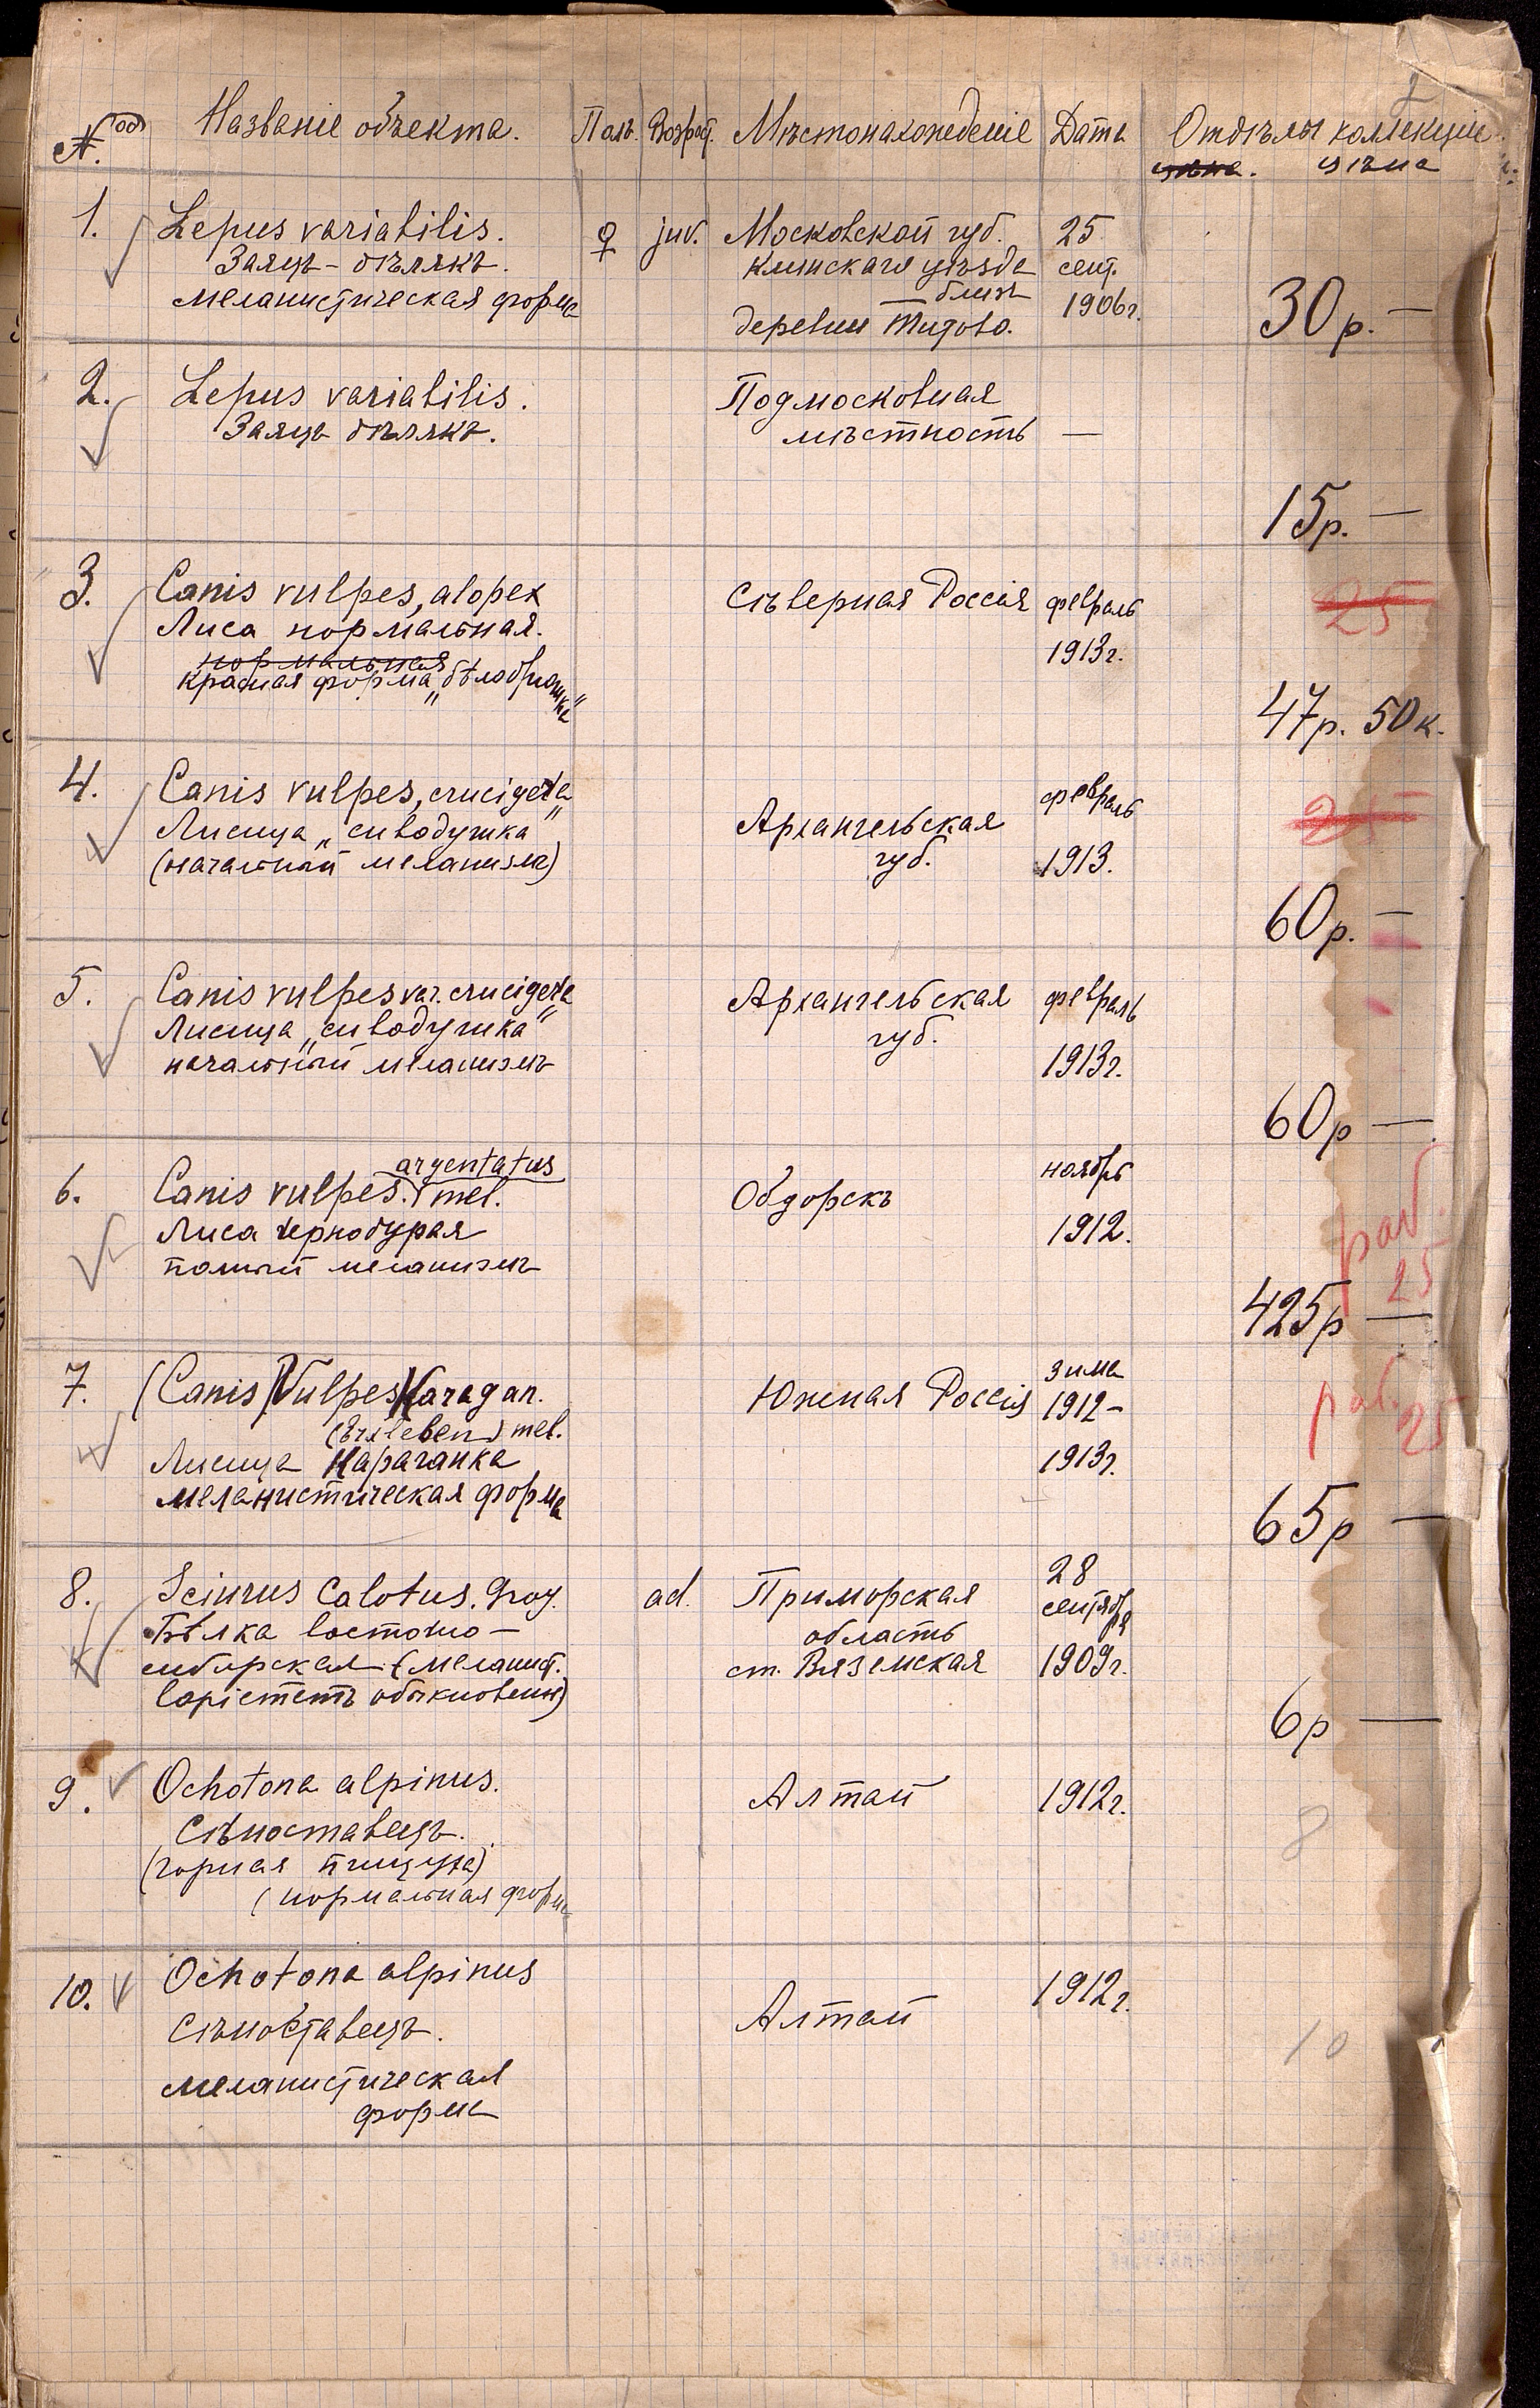 № Названіе объекта. Полъ. Возраст. Мѣстонахожденіе Дата Отдѣлы коллекціи
цѣна. цѣна
1. Lepus variabilis. ♀ juv. Московской губ. 25
Заяцъ-бѣлякъ. Клинскаго уѣзда сент.
меланистическая форма близъ 1906г.
деревни Титово. 30р.—
2. Lepus variabilis. Подмосковная
Заяцъ бѣлякъ. мѣстность —
15р.—
3. Canis vulpes, alopex Сѣверная Россія февраль 25
Лиса нормальная. 1913г.
нормальная
красная форма „бѣлобрюшка"
47р. 50к.
4. Canis vulpes, crucigera февраль 25
Лисица „сиводушка" Архангельская
(начальный меланизм) губ. 1913.
60р.—
5. Canis vulpes var. crucigera Архангельская февраль
Лисица „сиводушка" губ.
начальный меланизмъ 1913г.
60р—
argentatus ноябрь
6. Canis vulpes. mel. Обдорскъ
Лиса чернобурая 1912. раб.
полный меланизмъ 25
425р—
7. (Canis) Vulpes Karagan. Южная Россія зима
(Erxleben) mel. 1912- раб.
Лисица Караганка 1913г. 25
меланистическая форма
65р—
8. Sciurus Calotus. Gray. ad. Приморская 28
Бѣлка восточно- область сентября
сибирская (меланист. ст. Вяземская 1909г.
варіететъ обыкновен.)
6р—
9. Ochotona alpinus. Алтай 1912г.
Сѣноставецъ. 8
(горная пищуха)
(нормальная форма
10. Ochotona alpinus 1912г.
Сѣноставецъ. Алтай 10
меланистическая
форма